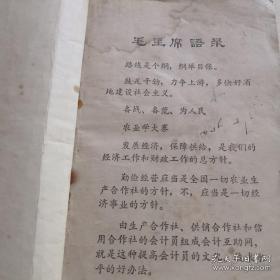 毛主席語录
路线是个纲，纲举目张。
鼓足干劲，力争上游，多快好省
地建设社会主义。
备战、备荒、为人民
农业学大寨
发展经济，保障供给，是我们的
经济工作和财政工作的总方针。
勤俭经营应当是全国一切农业生
产合作社的方针，不，应当是一切经
济事业的方针。
由生产合作社、供销合作社和信
用合作社的会计员组成会计互助网，
就是这种提高会计员的文
平的好办法。